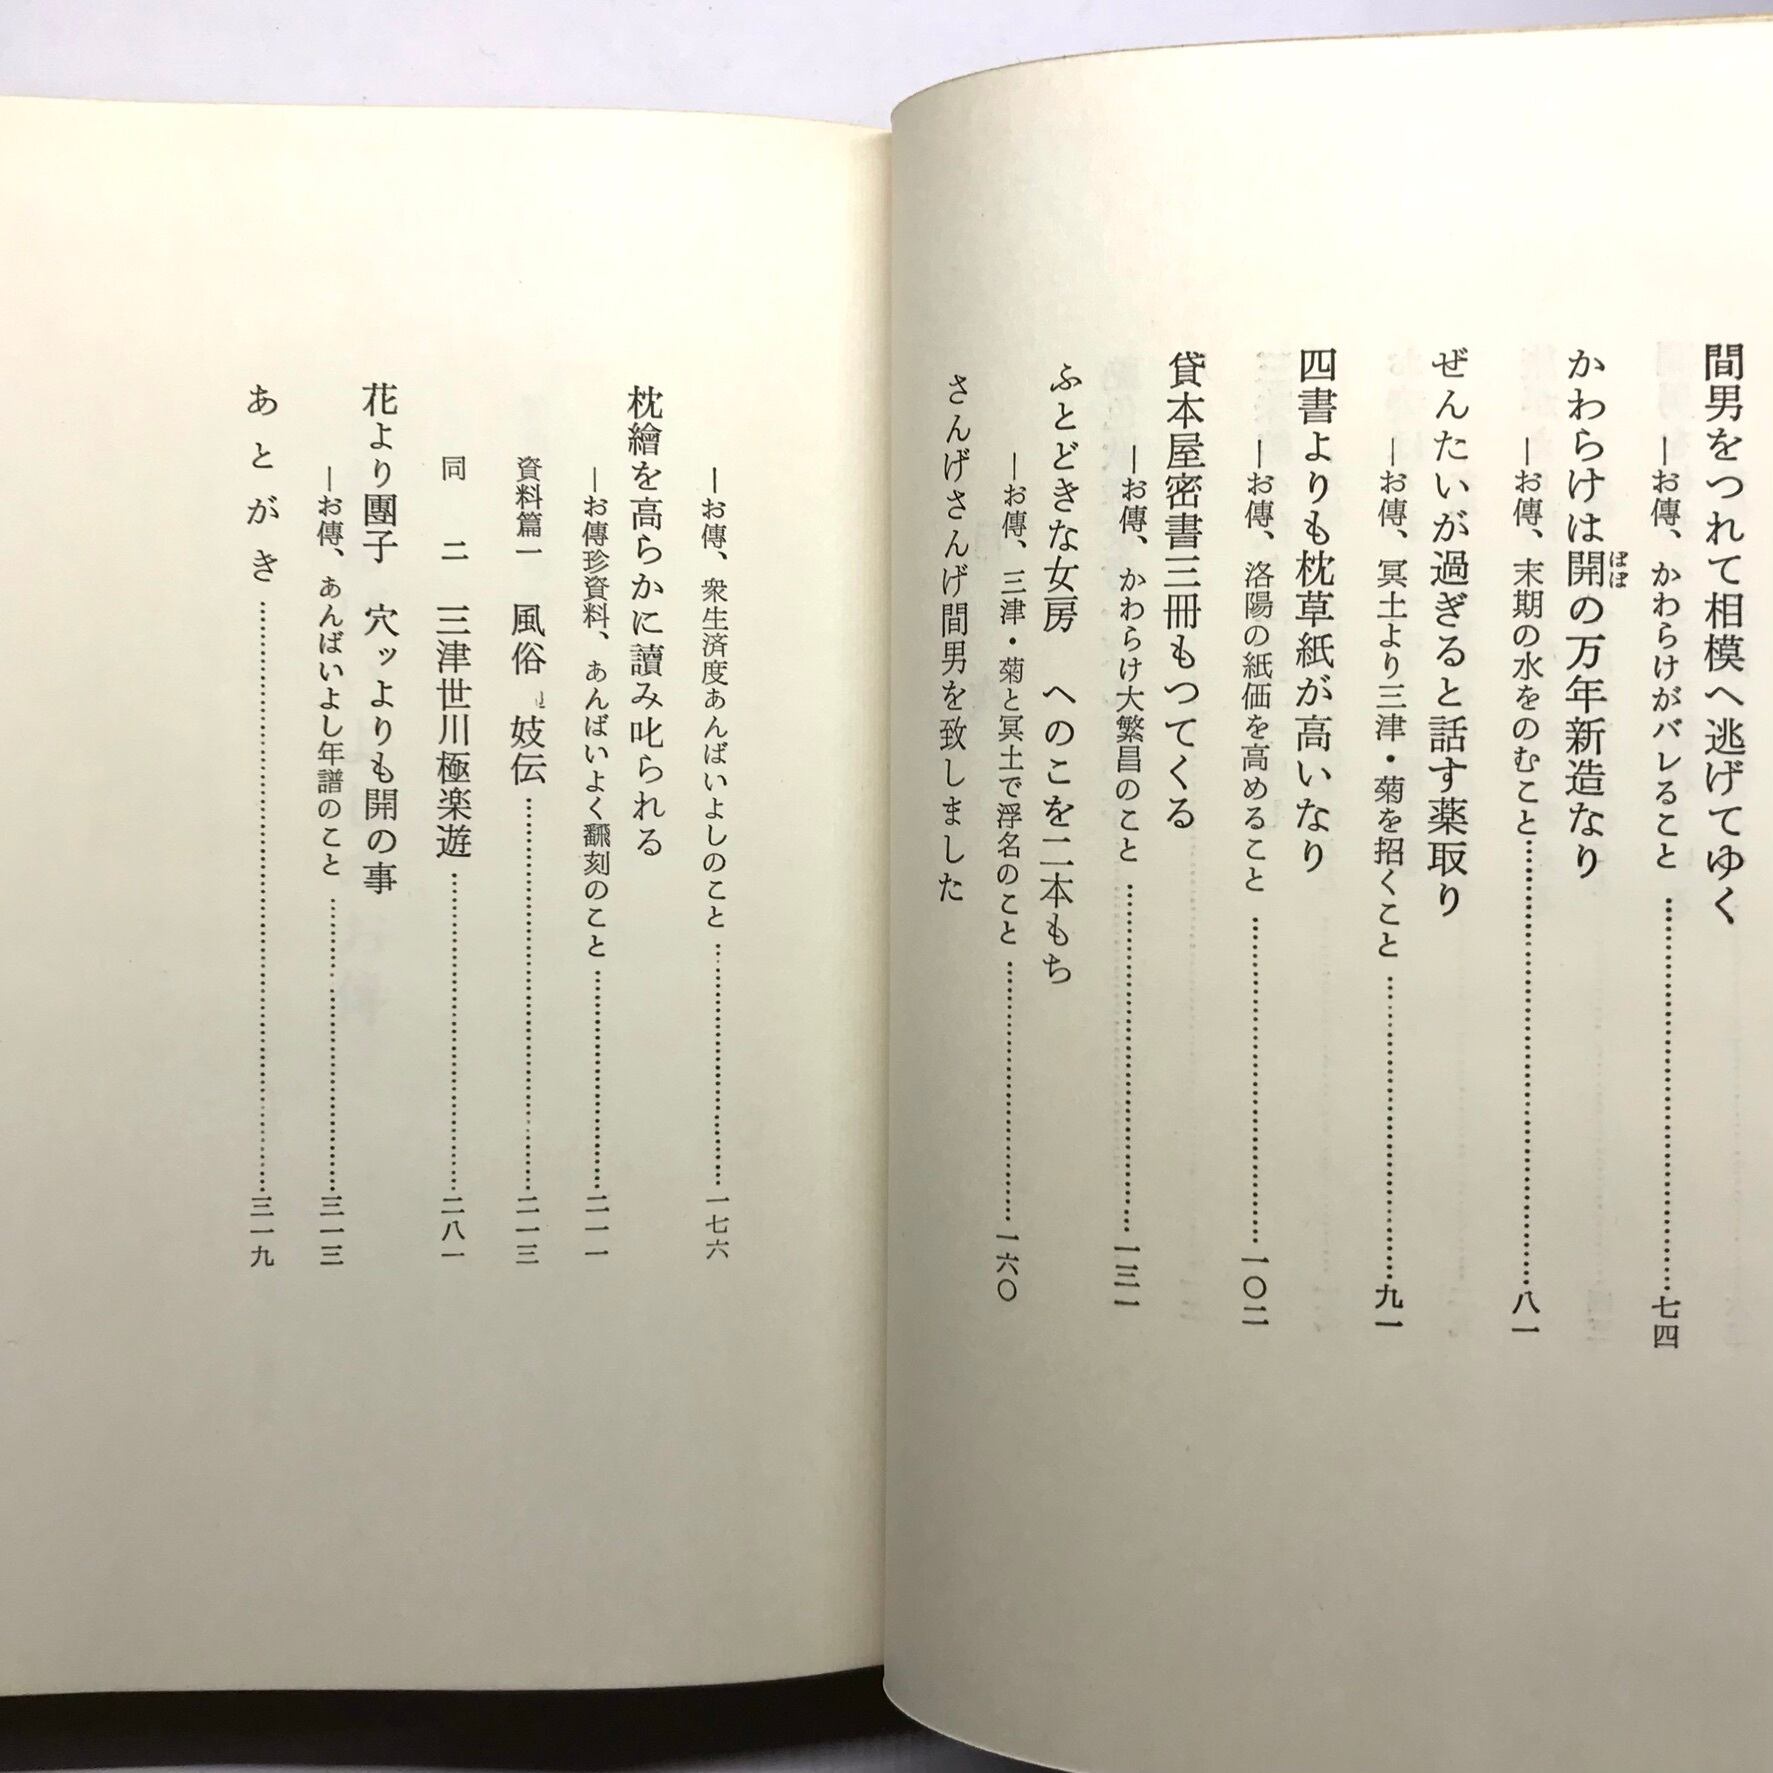 間男をつれて相模へ逃げてゆく
―お傳、かわらけがバレること……七四
かわらけは開の万年新造なり
ぼぼ
―お傳、末期の水をのむこと……八一
ぜんたいが過ぎると話す薬取り
―お傳、冥土より三津・菊を招くこと……九一
四書よりも枕草紙が高いなり
―お傳、洛陽の紙価を高めること……一〇二
貸本屋密書三冊もつてくる
―お傳、かわらけ大繁昌のこと……一三一
ふとどきな女房　へのこを二本もち
―お傳、三津・菊と冥土で浮名のこと……一六〇
さんげさんげ間男を致しました
―お傳、衆生済度あんばいよしのこと……一七六
枕繪を高らかに讀み叱られる
―お傳珍資料、あんばいよく飜刻のこと……二一一
資料篇一　風俗　妓伝……二一三
同　二　三津世川極楽遊……二八一
花より團子　穴ッよりも開の事
―お傳、あんばいよし年譜のこと……三一三
あとがき……三一九